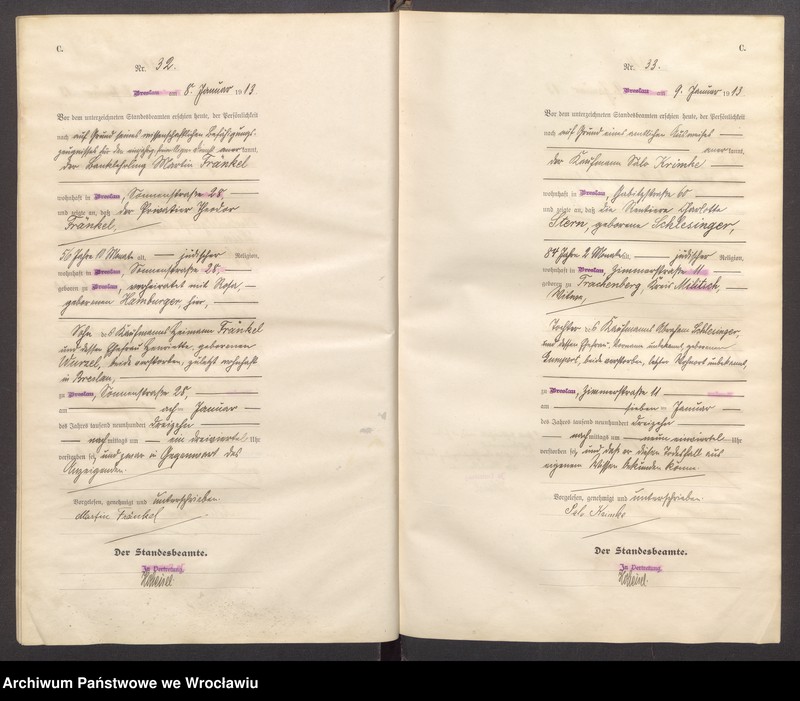 C.
Nr. 32.
Breslau am 8. Januar 1913
Vor dem unterzeichneten Standesbeamten erschien heute, der Persönlichkeit
nach auf Grund seines wissenschaftlichen Befähigungs-
zeugnisses für den Dienst anerkannt,
der Banklehrling Martin Fränkel
wohnhaft in Breslau, Sonnenstraße 28,
und zeigte an, daß der Privatier Theodor
Fränkel,
50 Jahre 10 Monate alt, jüdischer Religion,
wohnhaft in Breslau, Sonnenstraße 28,
geboren zu Breslau, verheiratet mit Rosa,
geborenen Hamburger, hier,
Sohn des Kaufmanns Heimann Fränkel
und dessen Ehefrau Henriette, geborenen
Wurzel, beide verstorben, zuletzt wohnhaft
in Breslau,
zu Breslau, Sonnenstraße 28,
am acht Januar
des Jahres tausend neunhundert dreizehn
nachmittags um ein dreiviertel Uhr
verstorben sei, und zwar in Gegenwart des
Anzeigenden.
Vorgelesen, genehmigt und unterschrieben.
Martin Fränkel
Der Standesbeamte.
In Vertretung.
C.
Nr. 33.
Breslau am 9. Januar 1913
Vor dem unterzeichneten Standesbeamten erschien heute, der Persönlichkeit
nach auf Grund eines amtlichen Ausweises
anerkannt,
der Kaufmann Salo Krimke
wohnhaft in Breslau, Gabitzstraße 60
und zeigte an, daß die Rentiere Charlotte
Stern, geborene Schlesinger,
84 Jahre 2 Monate alt, jüdischer Religion,
wohnhaft in Breslau, Zimmerstraße 11
geboren zu Trachenberg, Kreis Militsch,
Witwe,
Tochter des Kaufmanns Abraham Schlesinger
und dessen Ehefrau, Vorname unbekannt, geborenen
Gumpert, beide verstorben, letzter Wohnort unbekannt,
zu Breslau, Zimmerstraße 11
am sieben Januar
des Jahres tausend neunhundert dreizehn
nachmittags um neun einviertel Uhr
verstorben sei, und daß er diesen Todesfall aus
eigenem Wissen bekunden könne.
Vorgelesen, genehmigt und unterschrieben.
Salo Krimke
Der Standesbeamte.
In Vertretung.
Archiwum Państwowe we Wrocławiu